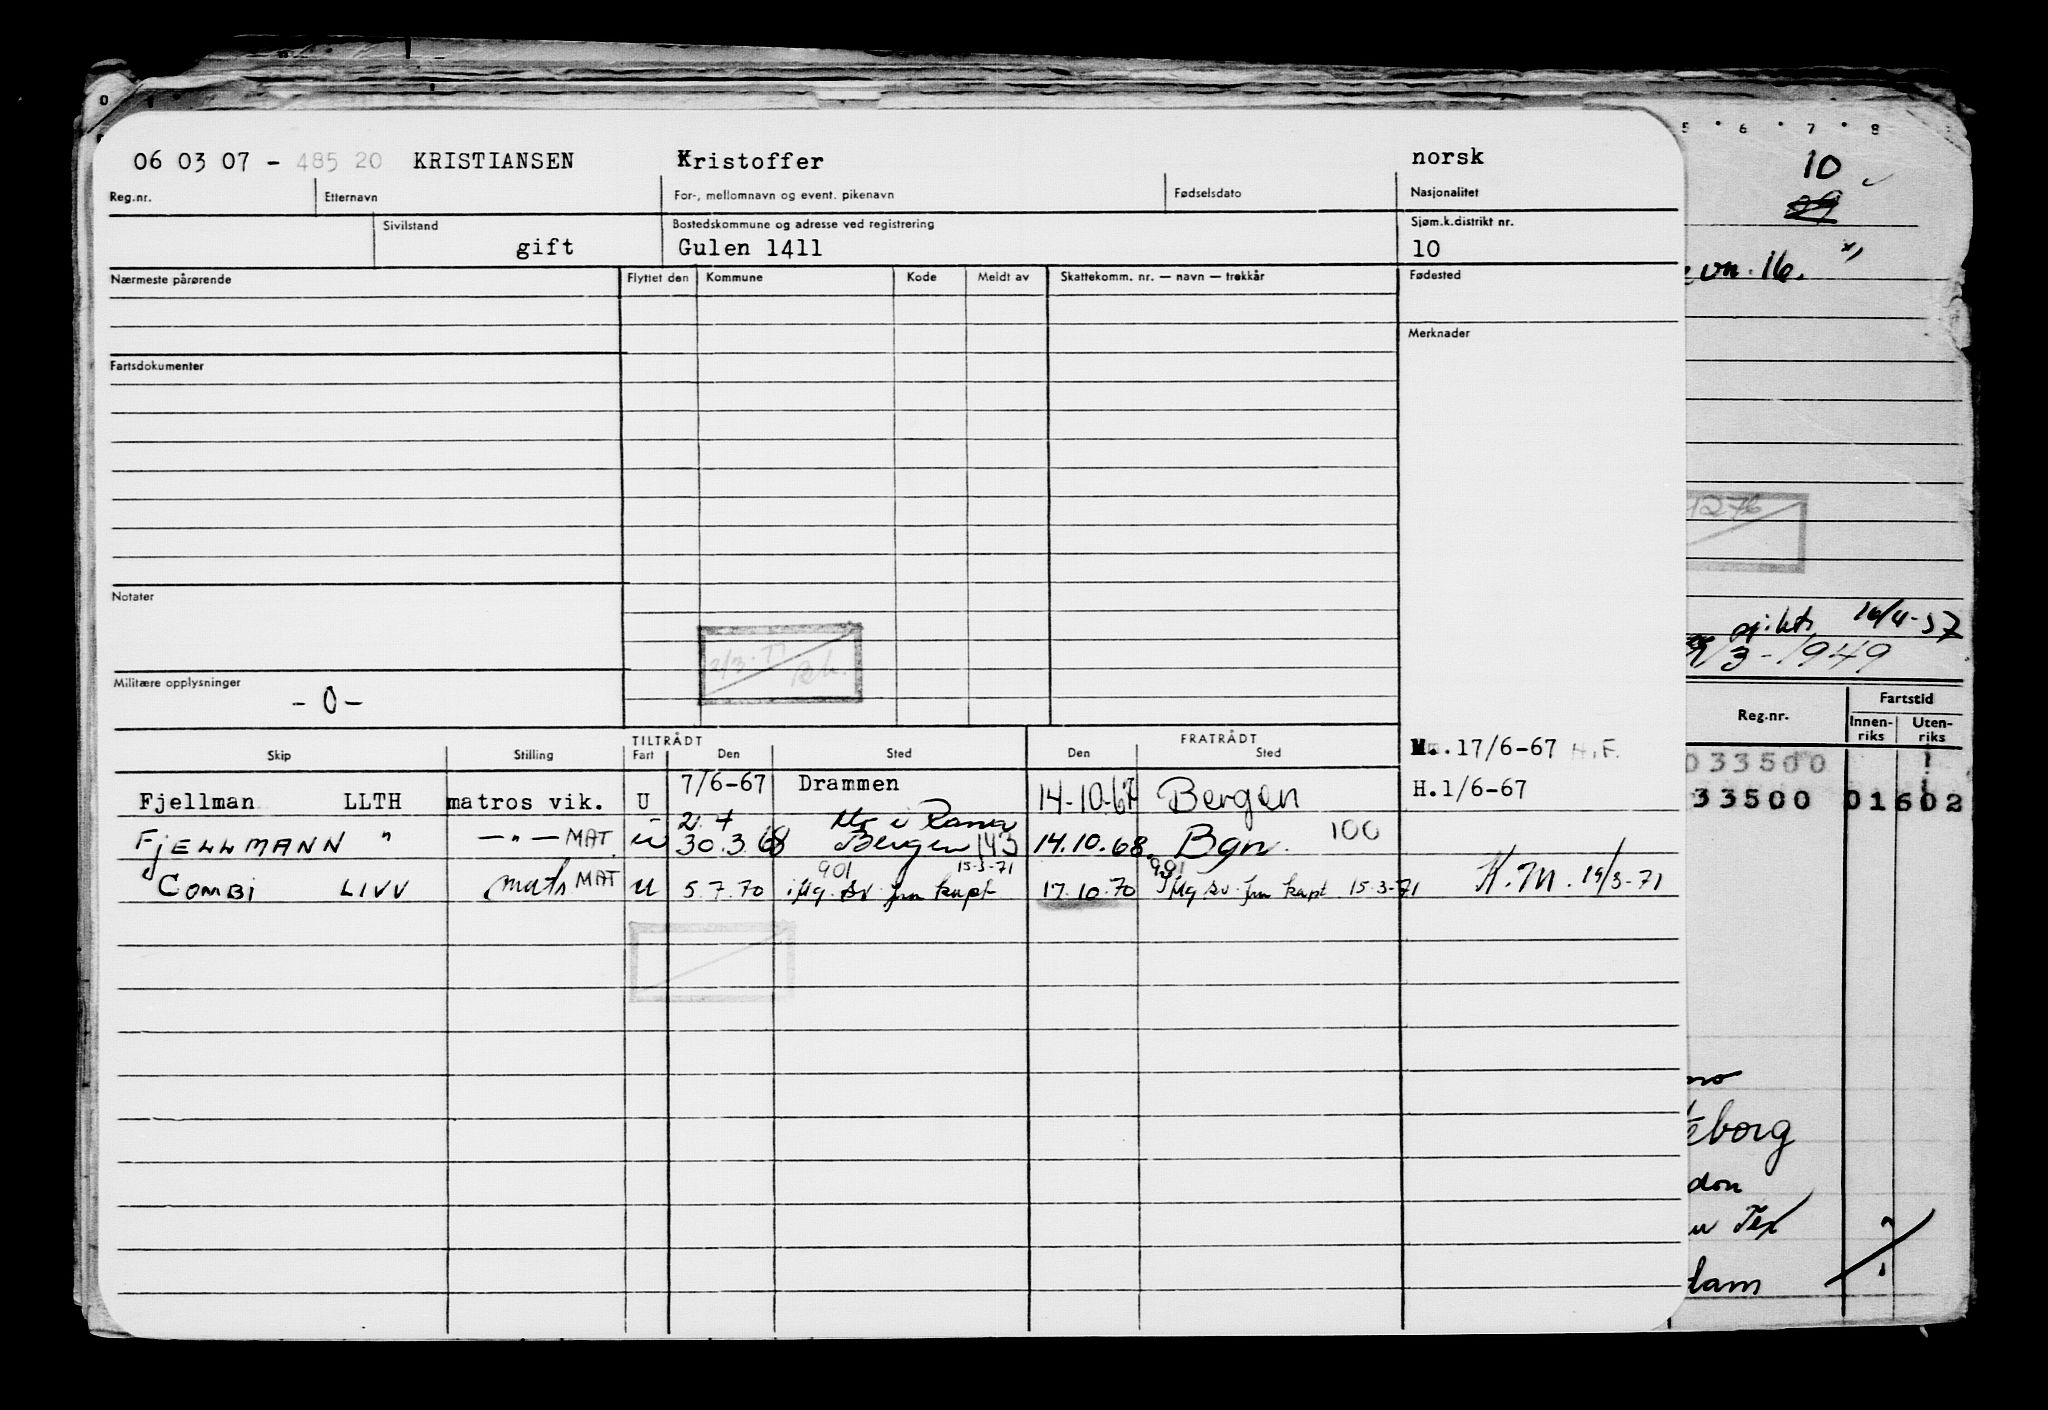 06 03 07 - 485 20 KRISTIANSEN Kristoffer norsk
Reg.nr. Etternavn For-, mellomnavn og event. pikenavn Fødselsdato Nasjonalitet
Sivilstand Bostedskommune og adresse ved registrering Sjøm.k.distrikt nr.
gift Gulen 1411 10
Nærmeste pårørende Flyttet den Kommune Kode Meldt av Skattekomm. nr. — navn — trekkår Fødested
Merknader
Fartsdokumenter
Notater
Militære opplysninger
- 0 -
TILTRÅDT FRATRÅDT
Skip Stilling Fart Den Sted Den Sted
M..17/6-67 H.F.
Fjellman LLTH matros vik. U 7/6-67 Drammen 14-10-67 Bergen H.1/6-67
FJELLMANN " —"— MAT. u 30.3.68 Bergen 143 14.10.68 Bgn. 100
901 15-3-71 901
COMBI LIVV mats MAT u 5.7.70 kapt 17.10.70 kapt 15-3-71 K.M. 19/3-71
5 6 7 8
10
29
vn. 16.
1276
16/4-57
3-1949
Reg.nr. Fartstid
Innenriks Utenriks
033500
33500 01602
borg
don
Tex
dam